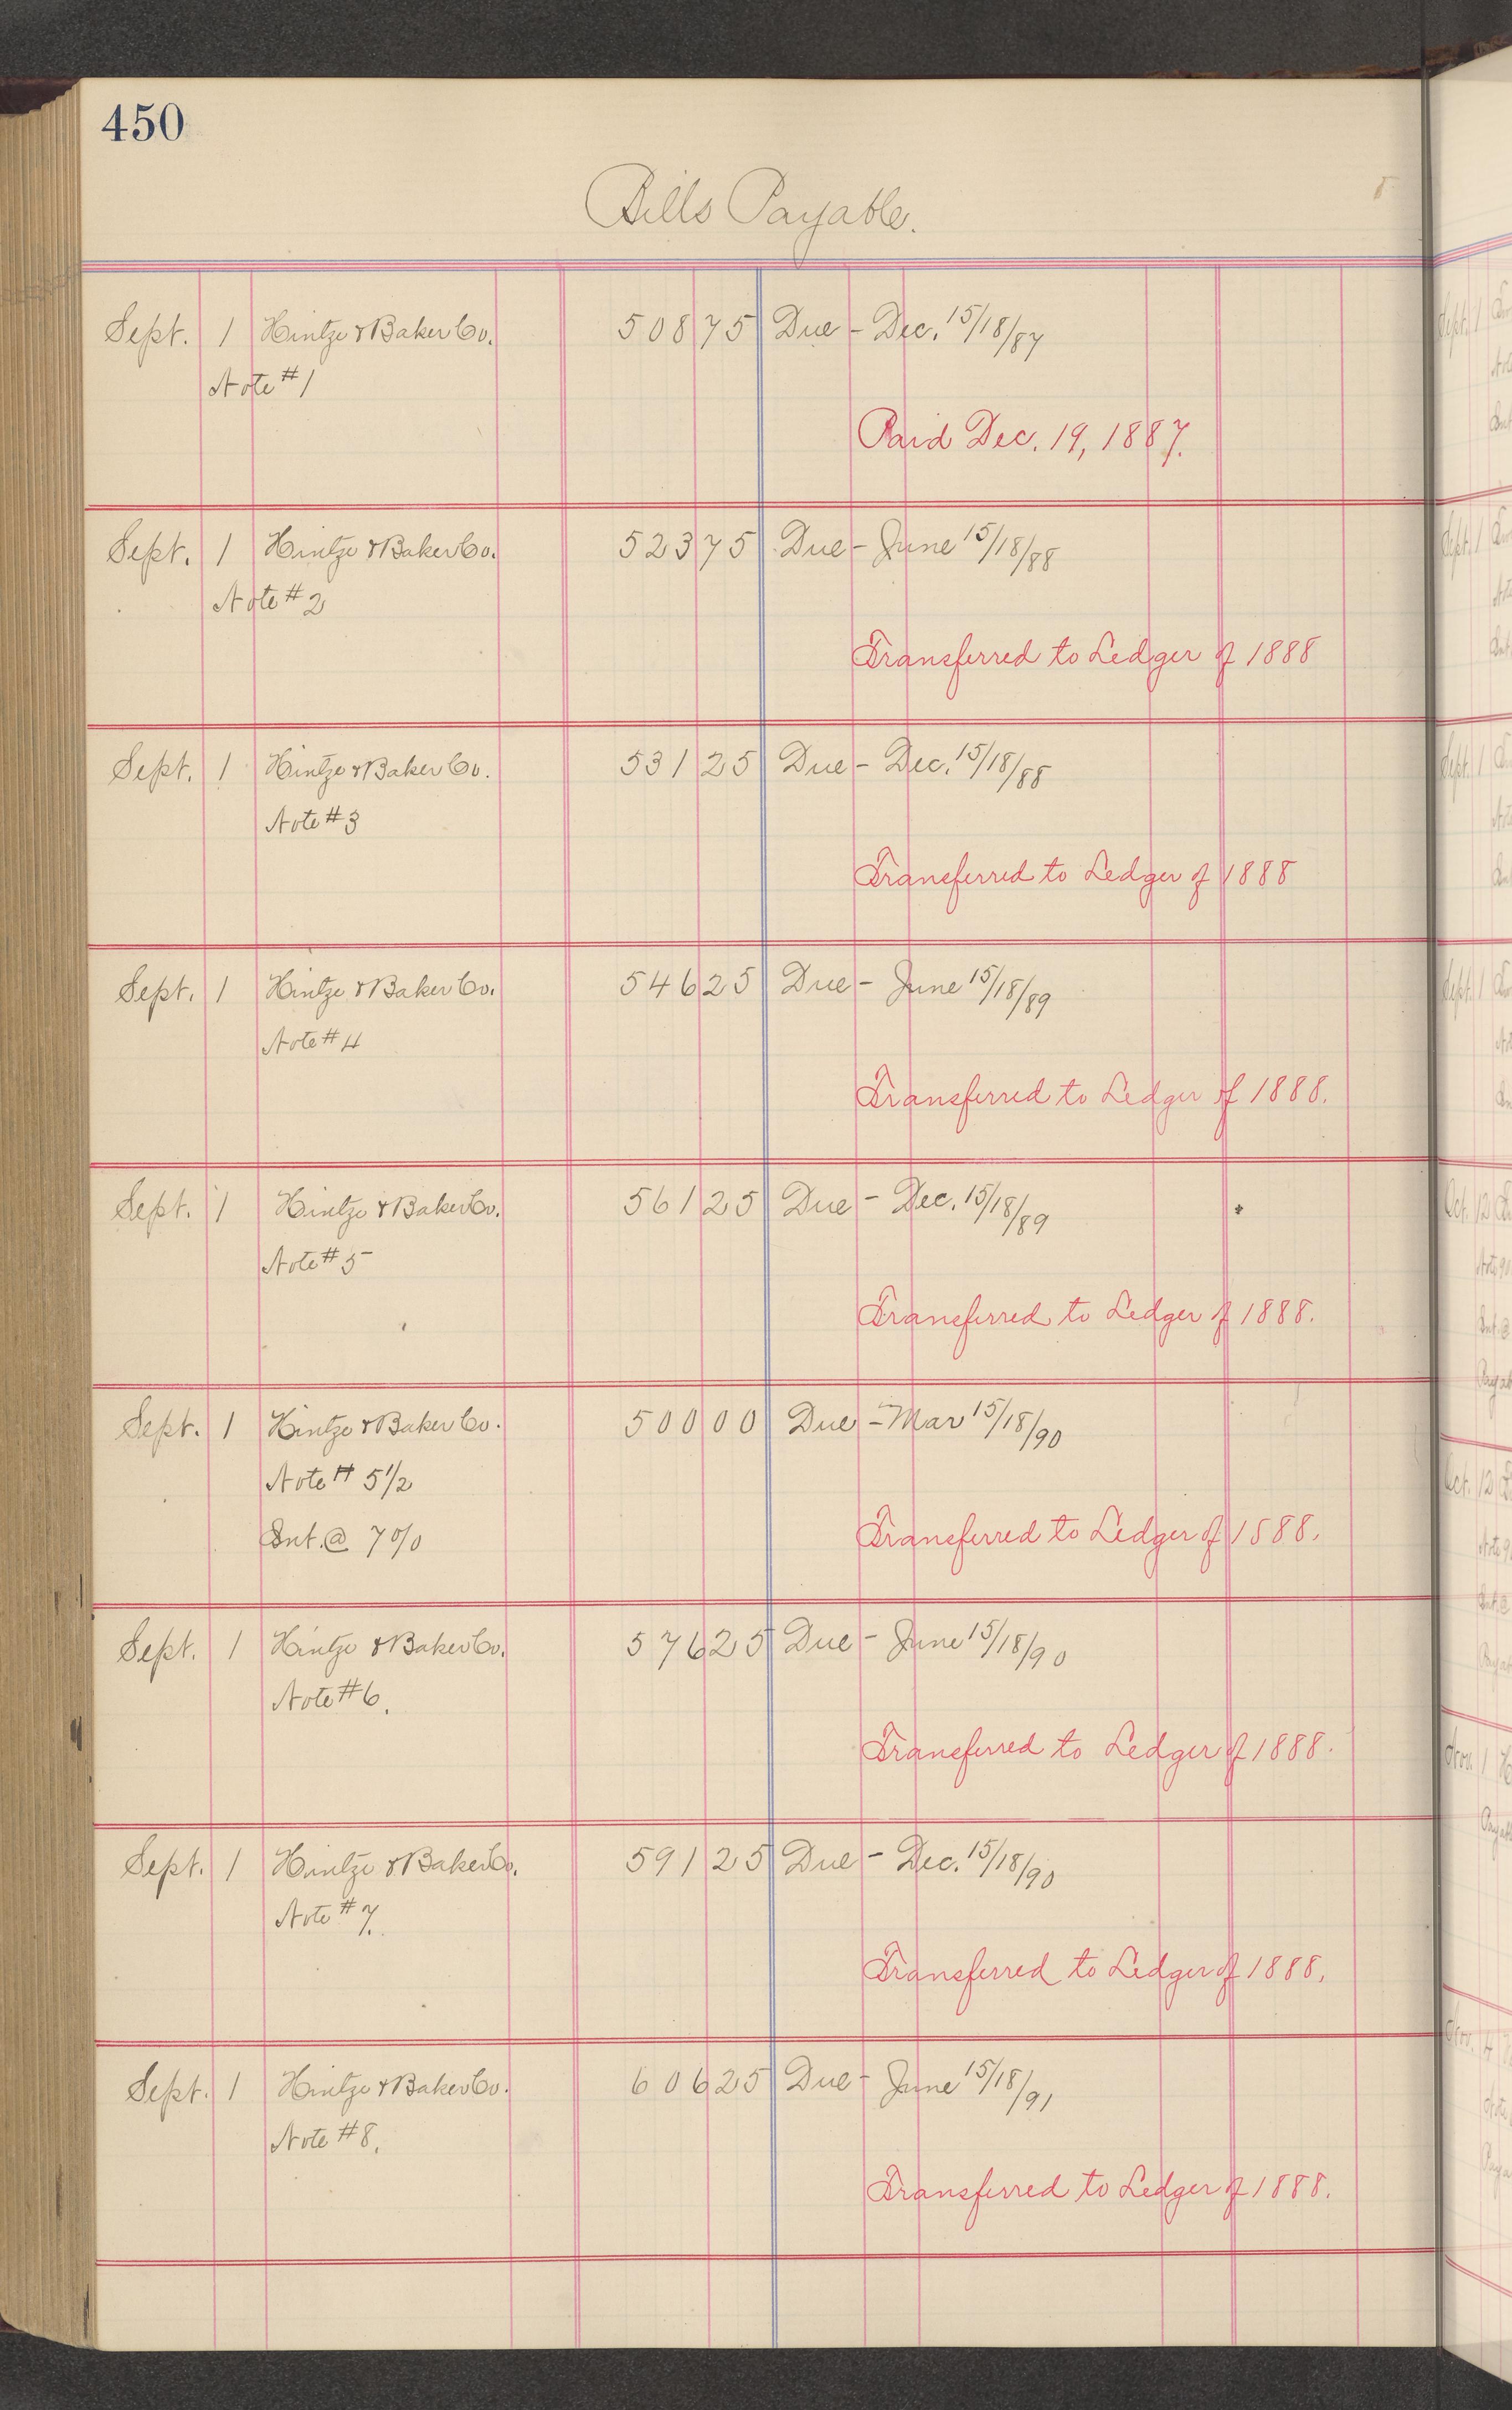 450
Bills Payable.
Sept. 1 Hintze & Baker Co. 508 75 Due - Dec. 15/18/87
Note #1
Paid Dec. 19, 1887.
Sept. 1 Hintze & Baker Co. 523 75 Due - June 15/18/88
Note #2
Transferred to Ledger of 1888
Sept. 1 Hintze & Baker Co. 531 25 Due - Dec. 15/18/88
Note #3
Transferred to Ledger of 1888
Sept. 1 Hintze & Baker Co. 546 25 Due - June 15/18/89
Note #4
Transferred to Ledger of 1888.
Sept. 1 Hintze & Baker Co. 561 25 Due - Dec. 15/18/89
Note #5
Transferred to Ledger of 1888.
Sept. 1 Hintze & Baker Co. 500 00 Due - Mar 15/18/90
Note # 5 1/2
Int. @ 7%
Transferred to Ledger of 1888.
Sept. 1 Hintze & Baker Co. 576 25 Due - June 15/18/90
Note #6.
Transferred to Ledger of 1888.
Sept. 1 Hintze & Baker Co. 591 25 Due - Dec. 15/18/90
Note #7.
Transferred to Ledger of 1888.
Sept. 1 Hintze & Baker Co. 606 25 Due - June 15/18/91
Note #8.
Transferred to Ledger of 1888.